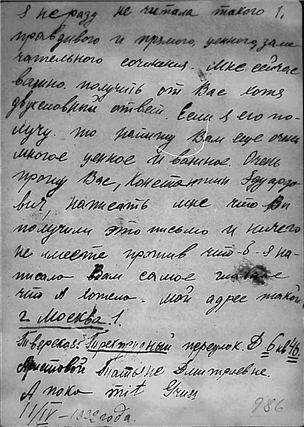 я не раз не читала такого 1.
правдивого и прямого, ценного заме
чательного сочинения. Мне сейчас
важно получить от Вас хотя
двухсловный ответ. Если я его по-
лучу, то напишу Вам еще очень
многое ценное и важное. Очень
прошу Вас, Константин Эдуардо
вич, написать мне что Вы
получили это письмо и ничего
не имеете против что я на-
писала Вам самое главное
что я хотела. Мой адрес такой
г. Москва 1.
переулок. Д. 6
Татьяне Дмитриевне.
А пока mit Gruss
11/IV - 1932 года.
986